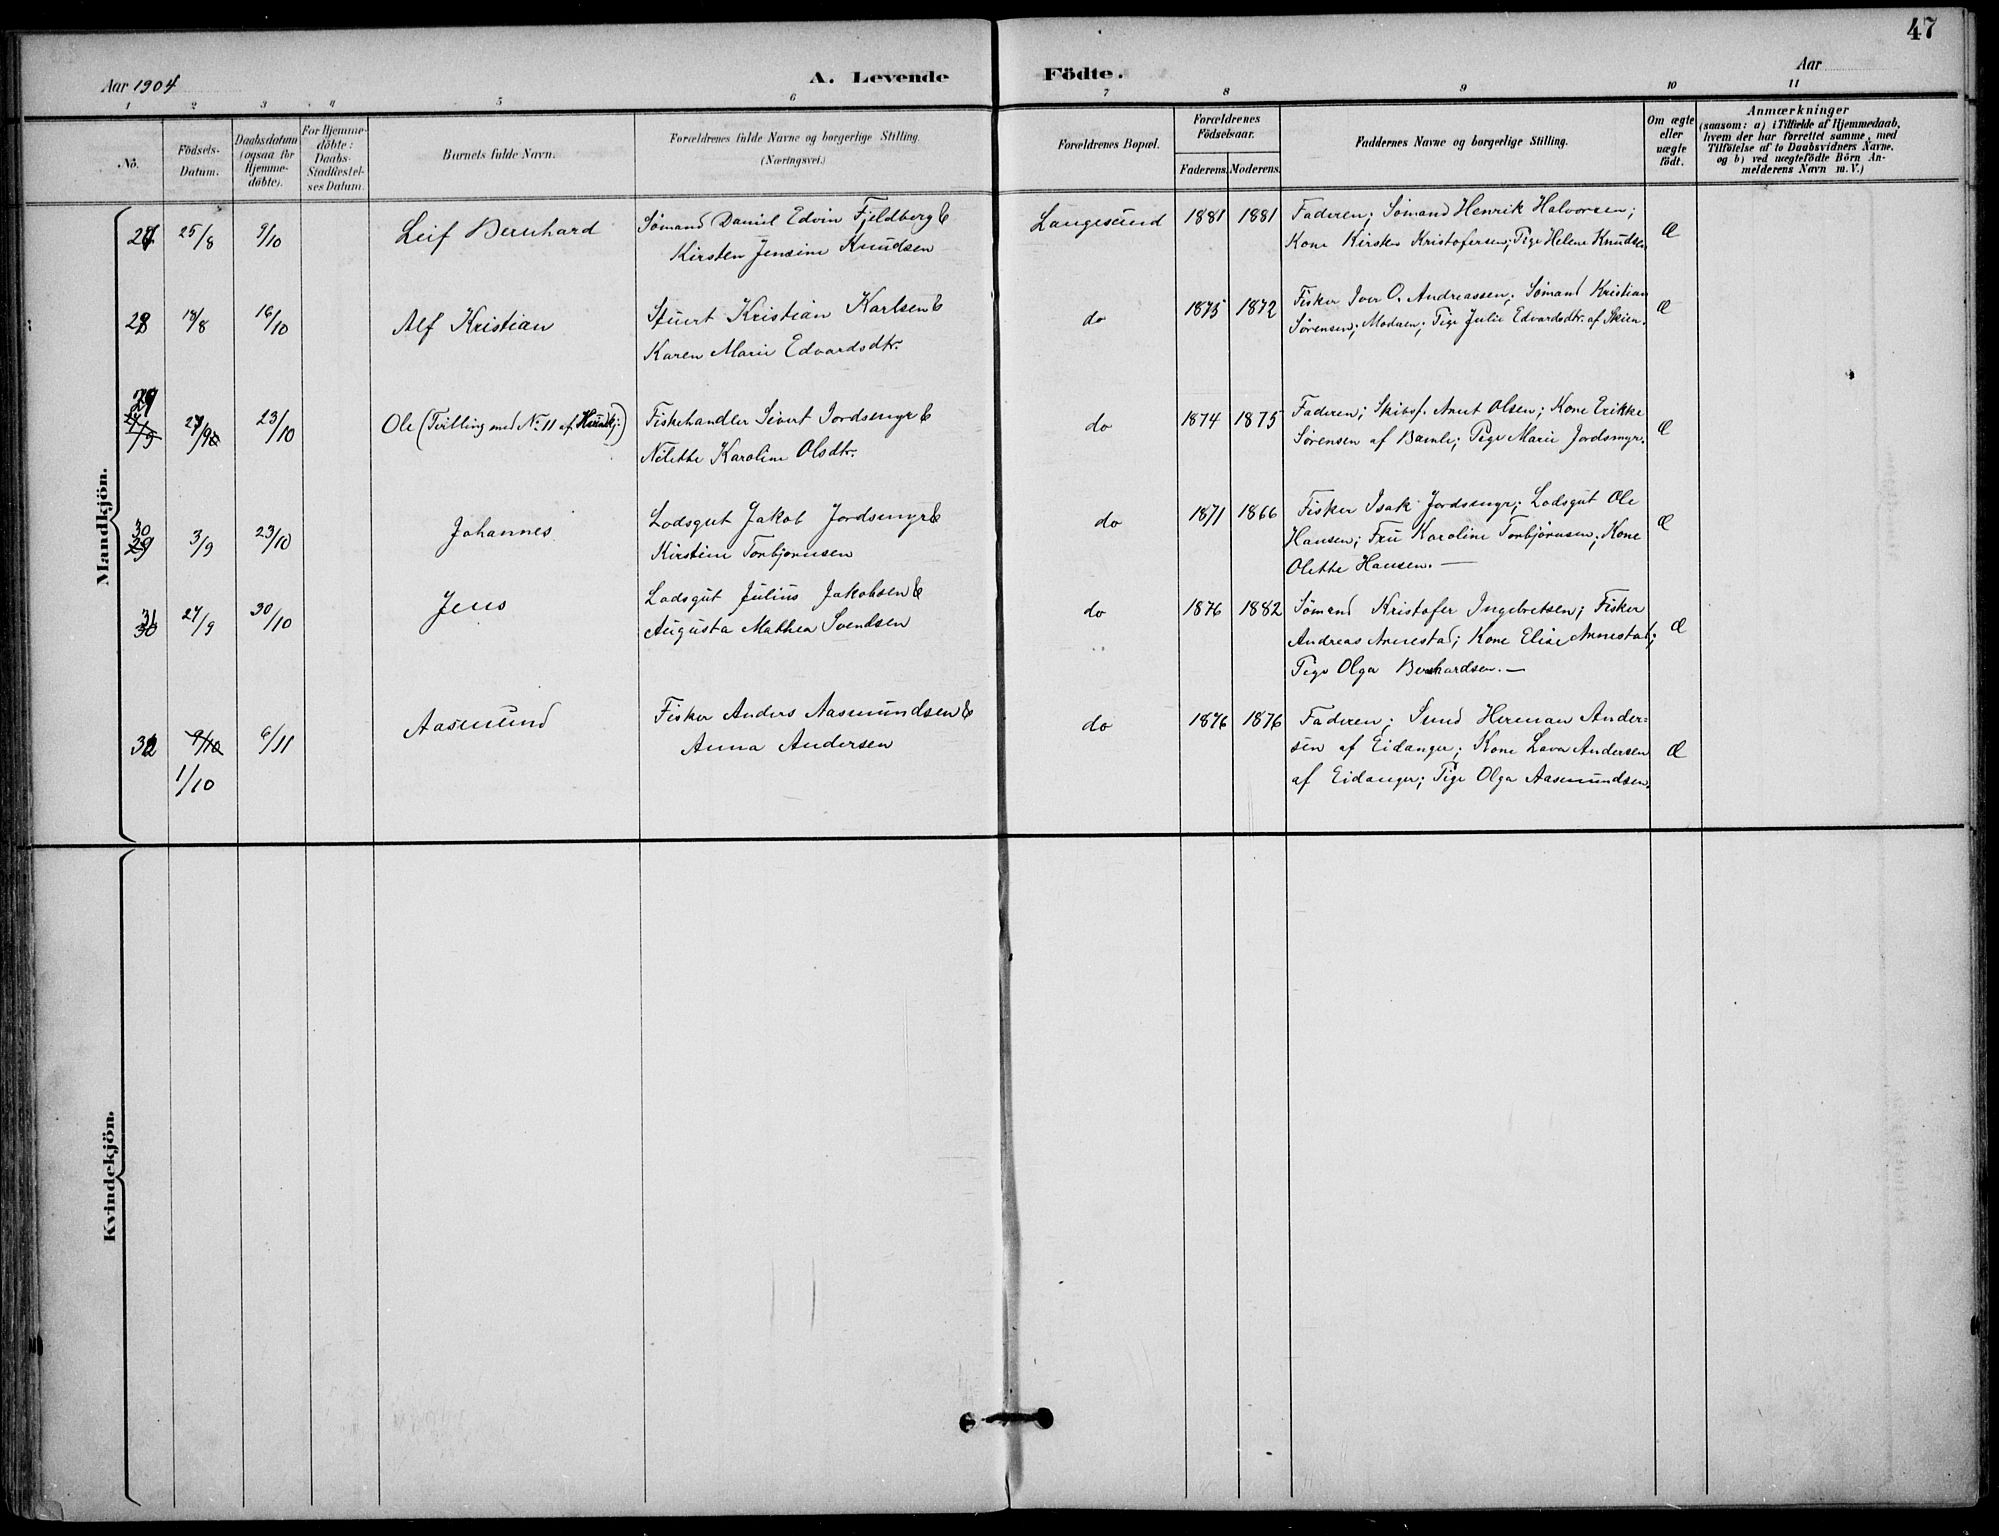 47
Aar 1904
A. Levende Födte.
Aar
1 2 3 4 5 6 7 8 9 10 11
No.
Födsels-
Datum.
Daabsdatum
(ogsaa för
Hjemme-
döbte).
For Hjemme-
döbte:
Daabs-
Stadfæstel-
ses Datum.
Barnets fulde Navn.
Forældrenes fulde Navne og borgerlige Stilling.
(Næringsvei.)
Forældrenes Bopæl.
Forældrenes
Födselsaar.
Faderens. Moderens.
Faddernes Navne og borgerlige Stilling.
Om ægte
eller
uægte
födt.
Anmærkninger
(saasom: a) i Tilfælde af Hjemmedaab,
hvem der har forrettet samme, med
Tilföielse af to Daabsvidners Navne,
og b) ved uægtefödte Börn An-
melderens Navn m. V.)
Mandkjön.
27 25/8 9/10 Leif Bernhard
Sømand Daniel Edvin Fjeldberg &
Kirsten Jensine Knudsen
Langesund 1881 1881
Faderen; Sømand Henrik Halvorsen;
Kone Kirsten Kristofersen; Pige Helene Knudsen
Æ
28 18/8 16/10 Alf Kristian
Stuert Kristian Karlsen &
Karen Marie Edvardsdtr.
do 1875 1872
Fisker Iver O. Andreassen; Sømand Kristian
Sørensen; Moderen; Pige Julie Edvardsdtr. af Skien.
Æ
29 27/9 23/10 Ole (Tvilling med No. 11 af Kvindkj:)
Fiskehandler Sivert Jordsmyr &
Nilette Karoline Olsdtr.
do 1874 1875
Faderen; Skibsf. Anut Olsen; Kone Erikke
Sørensen af Bamle; Pige Marie Jordsmyr.
Æ
30 3/9 23/10 Johannes
Lodsgut Jakob Jordsmyr &
Kirstine Torbjørnsen
do 1871 1866
Fisker Isak Jordsmyr; Lodsgut Ole
Hansen; Fru Karoline Torbjørnsen; Kone
Olette Hansen. —
Æ
31 27/9 30/10 Jens
Lodsgut Julius Jakobsen &
Augusta Mathea Svendsen
do 1876 1882
Sømand Kristofer Ingebretsen; Fisker
Andreas Annestad; Kone Elise Annestad;
Pige Olga Bernhardsen. —
Æ
32 9/10 6/11 Aasmund
1/10
Fisker Anders Aasmundsen &
Anna Andersen
do 1876 1876
Faderen; Smed Herman Ander-
sen af Eidanger; Kone Lava Andersen
af Eidanger; Pige Olga Aasmundsen.
Æ
Kvindekjön.